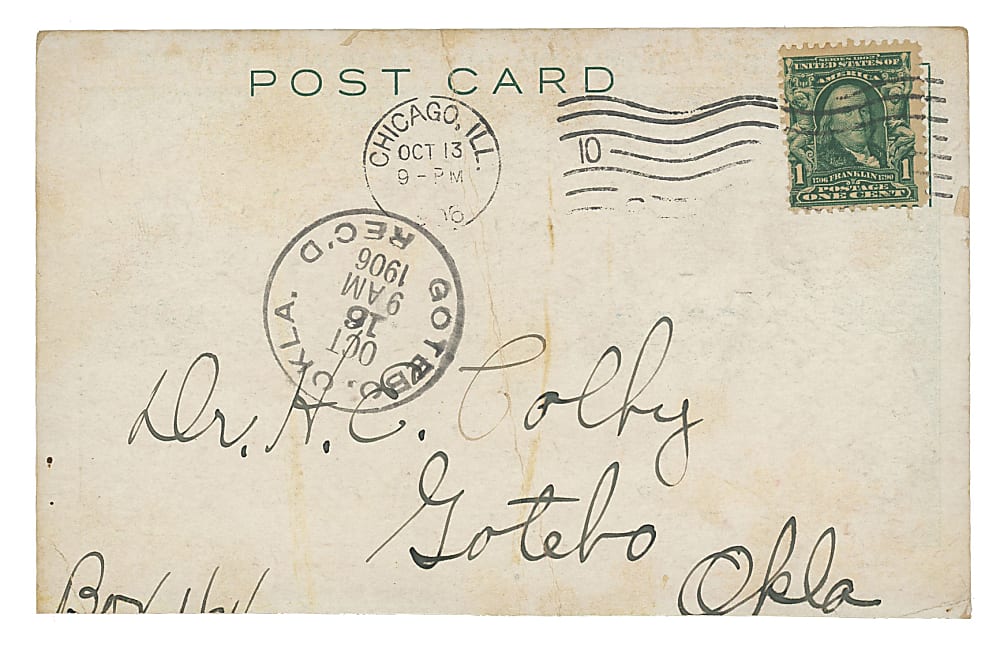 POST CARD
CHICAGO, ILL.
OCT 13
9 - PM
06
10
SERIES 1902
UNITED STATES OF
AMERICA
1 1
1706 FRANKLIN 1790
POSTAGE
ONE CENT
GOTEBO, OKLA.
OCT
16
9 AM
1906
REC'D
Dr. H. C. Colby
Gotebo
Okla
Box